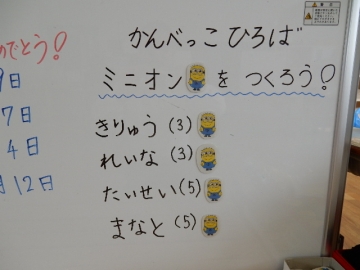 でとう!
9日
7日
4日
月12日
かんべっこ ひろば
ミニオン を つくろう!
きりゅう (3)
れいな (3)
たいせい (5)
まなと (5)